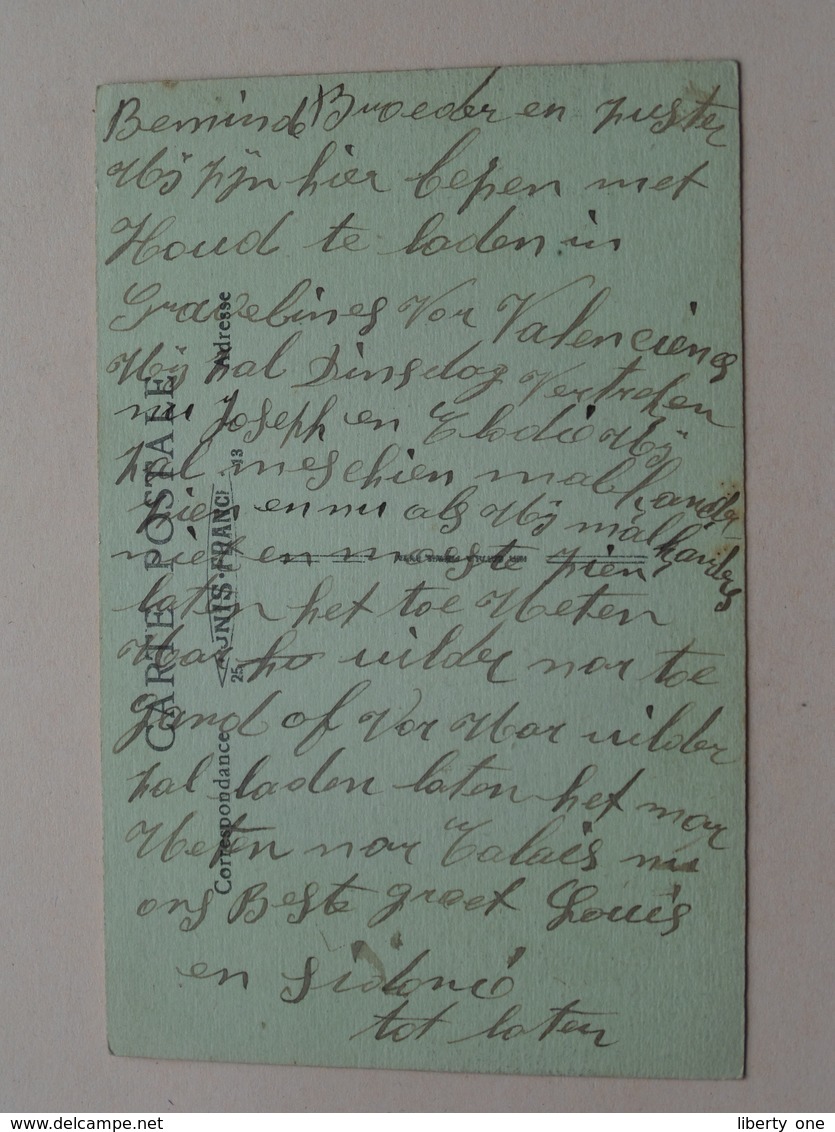 Beminde Broeder en zuster
Wij zijn hier bezen met
Houd te laden in
Gravelines Vor Valenciens
Wij zal Dinsdag Vertreken
nu Joseph en Elodie Wij
zal meschien malkander
zien en nu als Wij malkanders
niet en moeste zien
laten het toe Weten
War ho uilder nor toe
gand of Vor War uilder
zal laden laten het mar
Weten nor Calais nu
ons Beste groet Louis
en Sidonie
tot laten
CARTE POSTALE
Correspondance
Adresse
25
UNIS-FRANCE
13
delcampe.net
liberty one